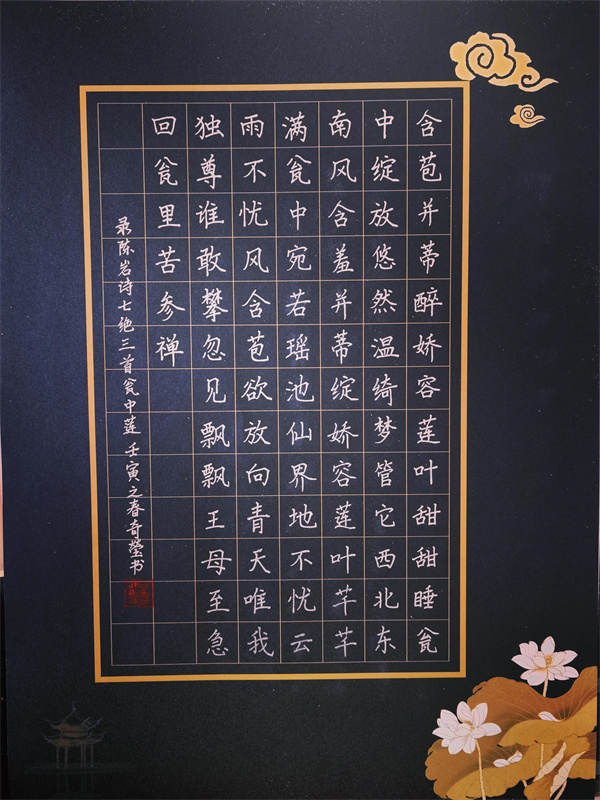 含苞并蒂醉娇容莲叶甜甜睡瓮
中绽放悠然温绮梦管它西北东
南风含羞并蒂绽娇容莲叶芊芊
满瓮中宛若瑶池仙界地不忧云
雨不忧风含苞欲放向青天唯我
独尊谁敢攀忽见飘飘王母至急
回瓮里苦参禅
录陈岩诗七绝三首瓮中莲 壬寅之春奇莹书